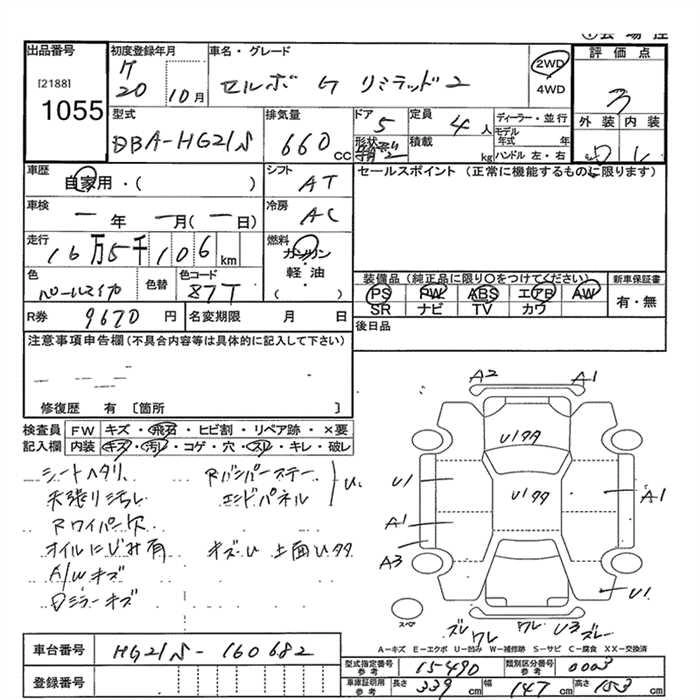 出品番号
[2188]
1055
初度登録年月
20
10月
車名・グレード
セルボ G リミテッド2
2WD
4WD
評価点
3
外装 内装
型式
DBA-HG21S
排気量
660 CC
ドア
5
形状
定員
4人
積載
kg
ディーラー・並行
モデル年式 年
ハンドル 左・右
車歴
自家用・( )
シフト
AT
セールスポイント(正常に機能するものに限ります)
車検
一年 一月(一日)
冷房
AC
走行
16万5千106km
燃料
ガソリン
軽油
( )
色
パールマイカ
色替
色コード
87T
装備品(純正品に限り○をつけてください)
PS PW ABS エアB AW
SR ナビ TV カワ
新車保証書
有・無
R券 9670円
名変期限 月 日
後日品
注意事項申告欄(不具合内容等は具体的に記入して下さい)
修復歴 有 [箇所 ]
検査員記入欄
FW キズ・飛石・ヒビ割・リペア跡・×要
内装 キズ・汚レ・コゲ・穴・スレ・キレ・破レ
シートヘタリ
天張り汚レ
Rワイパー欠
オイルにじみ有
A/Wキズ
Dミラーキズ
Rバンパーステー
エンドパネル
U.
キズU 上面Uタタ
A2 A1
Uタタ
U1
Uタタ
A1
A1
A3
U1
スペア
ズレ ワレ ワレ U3 ズレ
A-キズ E-エクボ U-凹み W-補修跡 S-サビ C-腐食 XX-交換済
車台番号 HG21S-160682
登録番号
型式指定番号 参考 15490
類別区分番号 参考 0003
車庫証明用 参考 長さ 339cm 幅 147cm 高さ 153cm